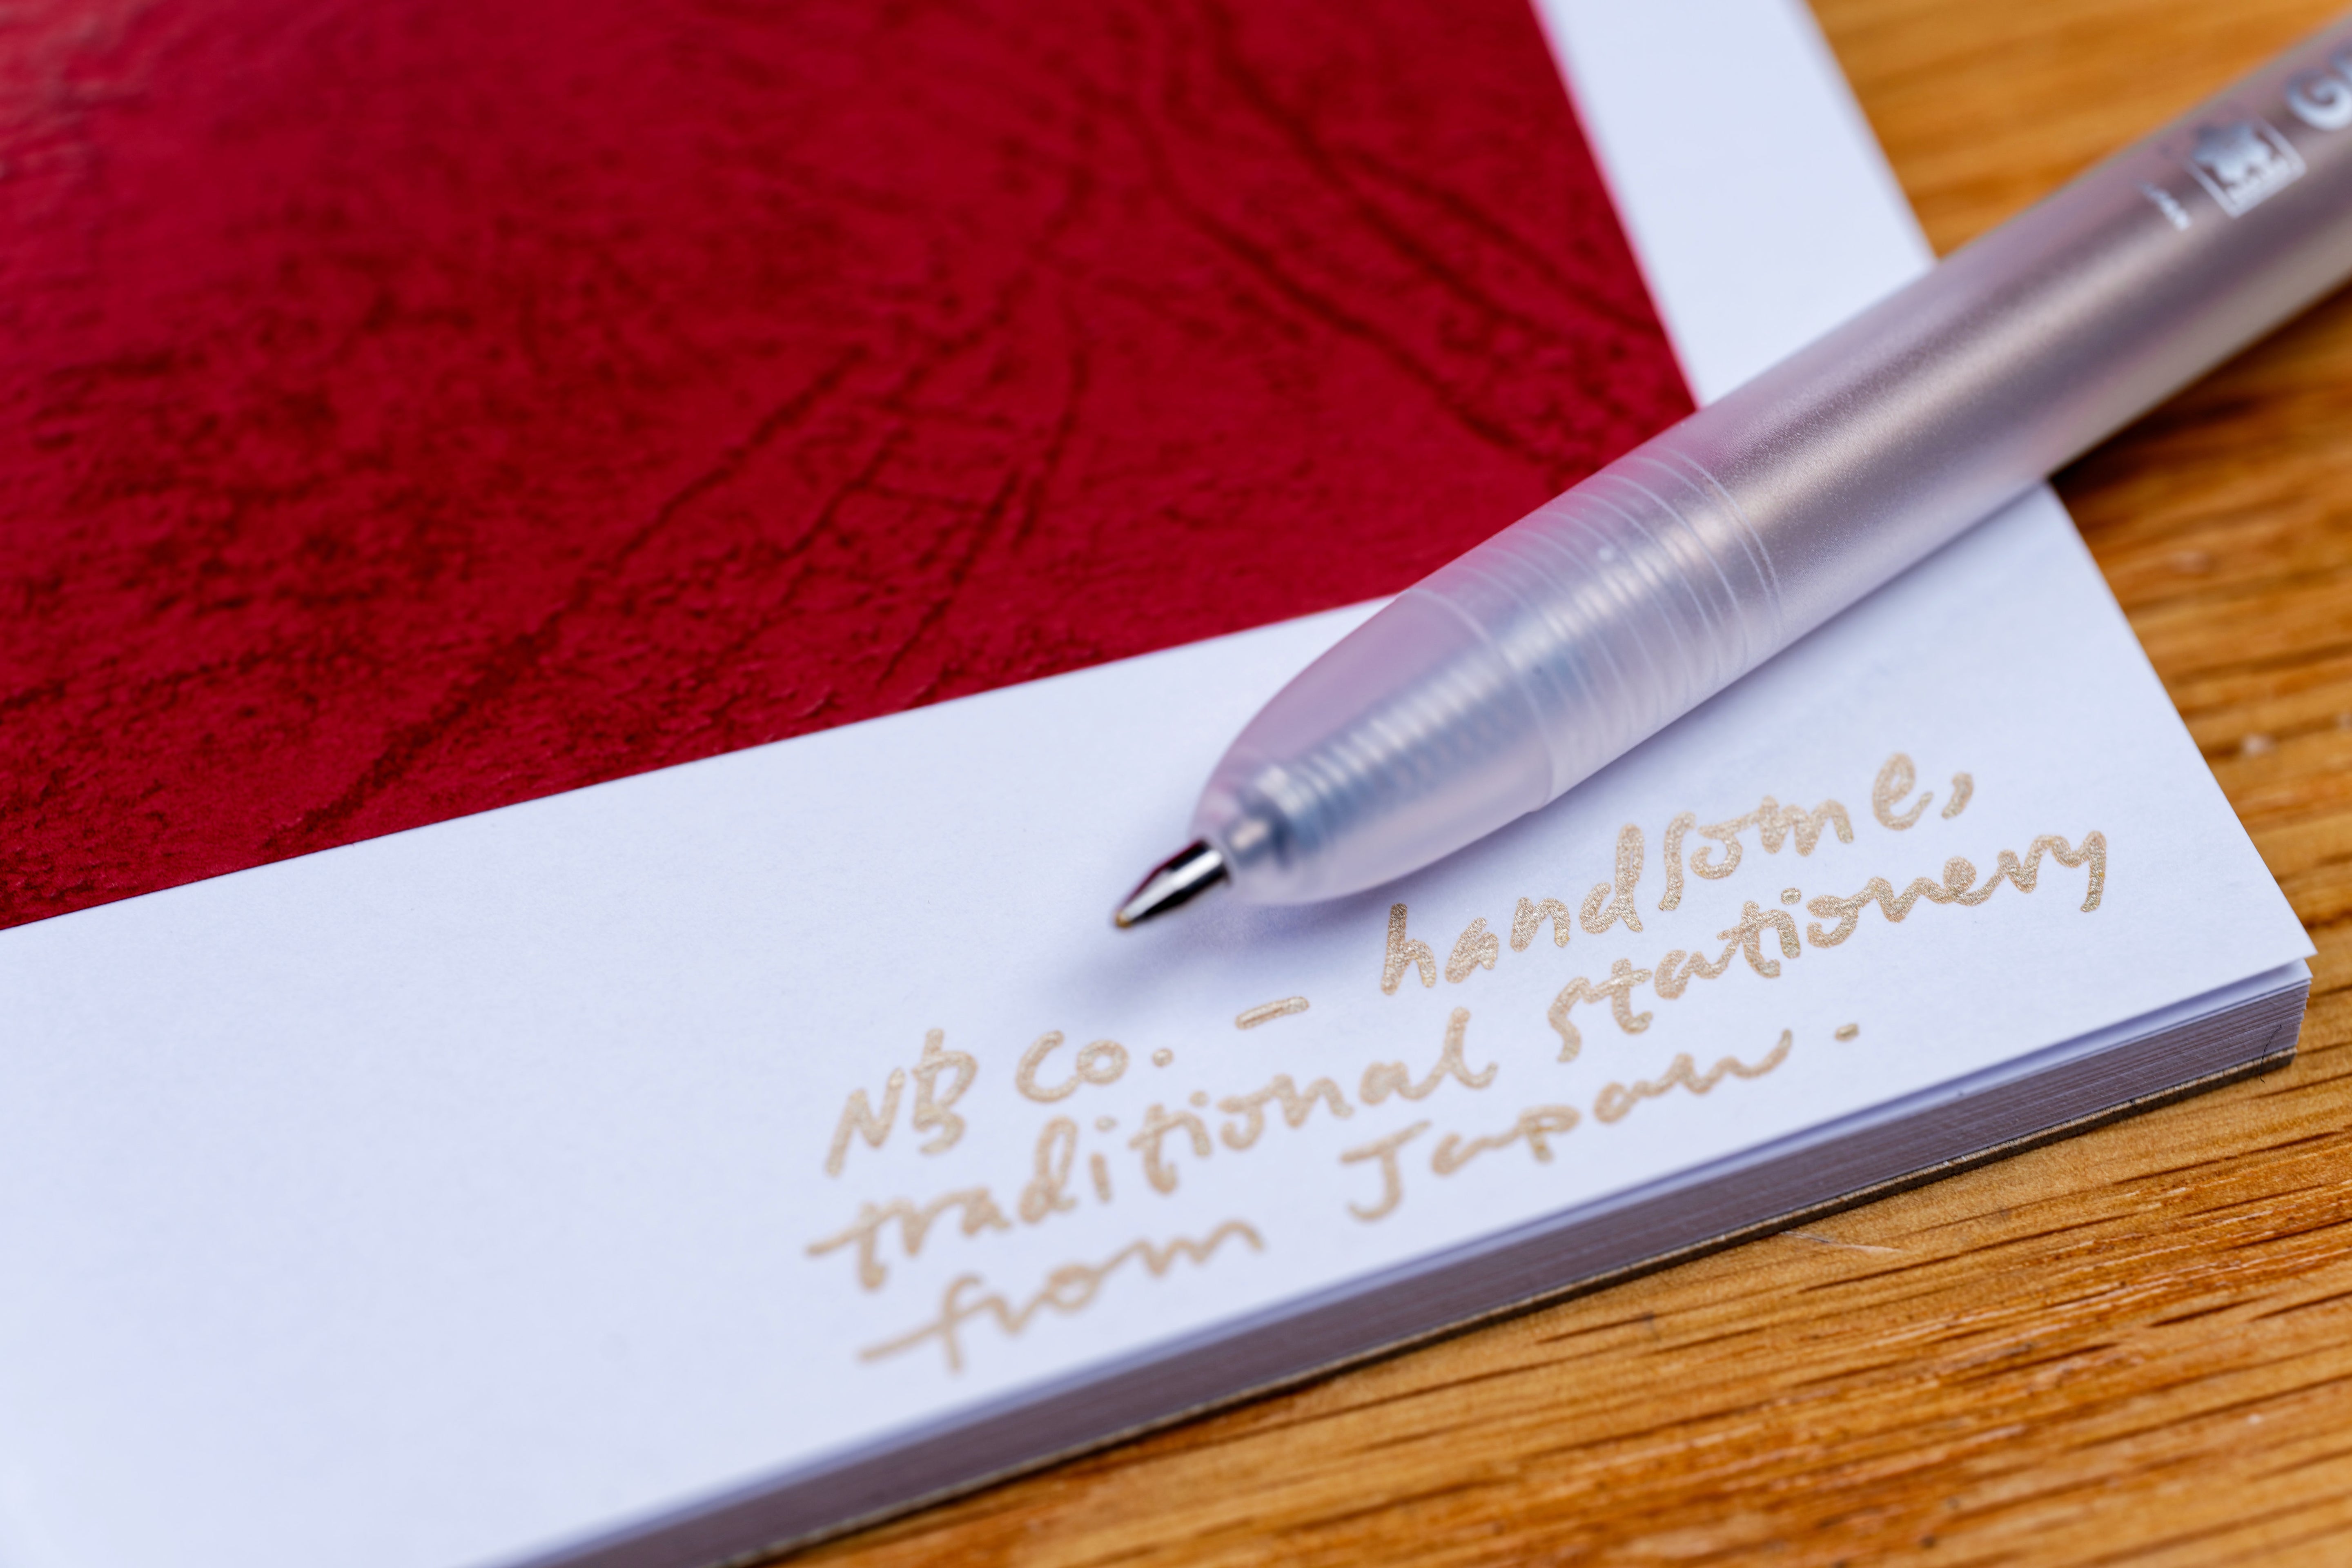 NB Co. – handsome,
traditional stationery
from Japan.